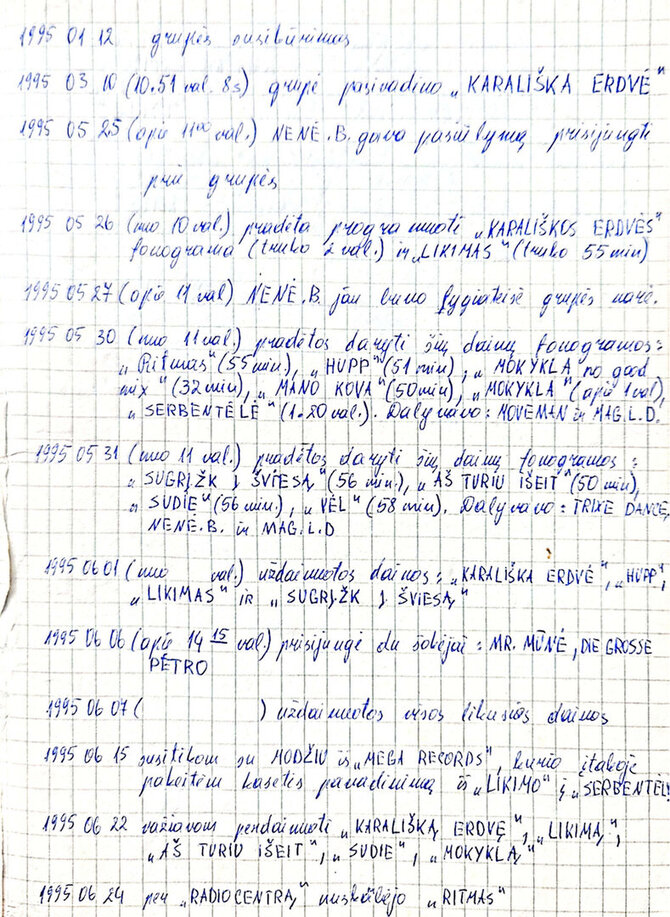 1995 01 12 grupės susibūrimas
1995 03 10 (10.51 val. 8s) grupė pasivadino „KARALIŠKA ERDVĖ"
1995 05 25 (apie 11⁰⁰ val.) NENĖ.B. gavo pasiūlymą prisijungti
prie grupės
1995 05 26 (nuo 10 val.) pradėta programuoti „KARALIŠKOS ERDVĖS"
fonograma (truko 2 val.) ir „LIKIMAS" (truko 55 min)
1995 05 27 (apie 11 val) NENĖ.B. jau buvo lygiateisė grupės narė.
1995 05 30 (nuo 11 val.) pradėtos daryti šių dainų fonogramos:
„Ritmas" (55 min), „HUPP" (51 min), „MOKYKLA no good
mix" (32 min), „MANO KOVA" (50 min), „MOKYKLA" (apie 1 val),
„SERBENTĖLĖ" (1.20 val.). Dalyvavo: MOVEMAN ir MAG.L.D.
1995 05 31 (nuo 11 val.) pradėtos daryti šių dainų fonogramos:
„SUGRĮŽK Į ŠVIESĄ" (56 min.), „AŠ TURIU IŠEIT" (50 min),
„SUDIE" (56 min), „VĖL" (58 min). Dalyvavo: TRIXE DANCE,
NENĖ.B. ir MAG.L.D
1995 06 01 (nuo val.) uždainuotos dainos: „KARALIŠKA ERDVĖ", „HUPP",
„LIKIMAS" IR „SUGRĮŽK Į ŠVIESĄ"
1995 06 06 (apie 14 15 val) prisijungė du šokėjai: MR. MŪNĖ, DIE GROSSE
PĖTRO
1995 06 07 ( ) uždainuotos visos likusios dainos
1995 06 15 susitikom su MODŽIU iš „MEGA RECORDS", kurio įtakoje
pakeitėm kasetės pavadinimą iš „LIKIMO" į „SERBENTĖL
1995 06 22 važiavom perdainuoti „KARALIŠKĄ ERDVĘ", „LIKIMĄ",
„AŠ TURIU IŠEIT", „SUDIE", „MOKYKLĄ"
1995 06 24 per „RADIOCENTRĄ" nuskambėjo „RITMAS"